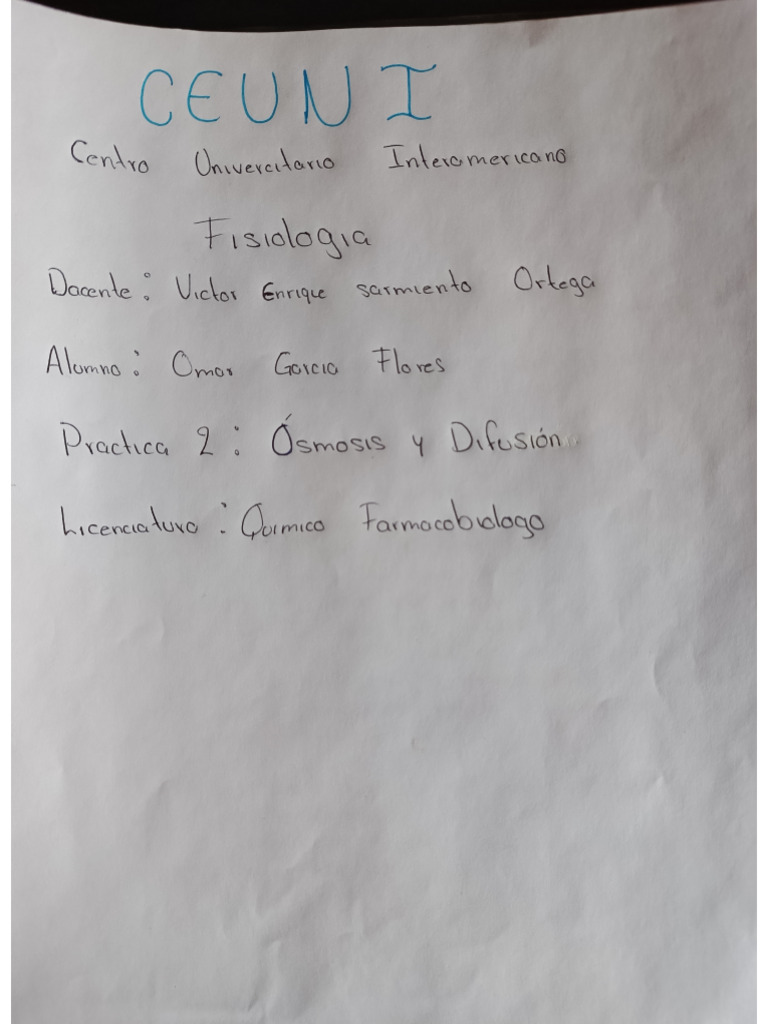 CEUNI
Centro Univercitario Interamericano
Fisiologia
Docente: Victor Enrique sarmiento Ortega
Alumno: Omar Garcia Flores
Practica 2: Ósmosis y Difusión
Licenciatura: Quimico Farmacobiologo